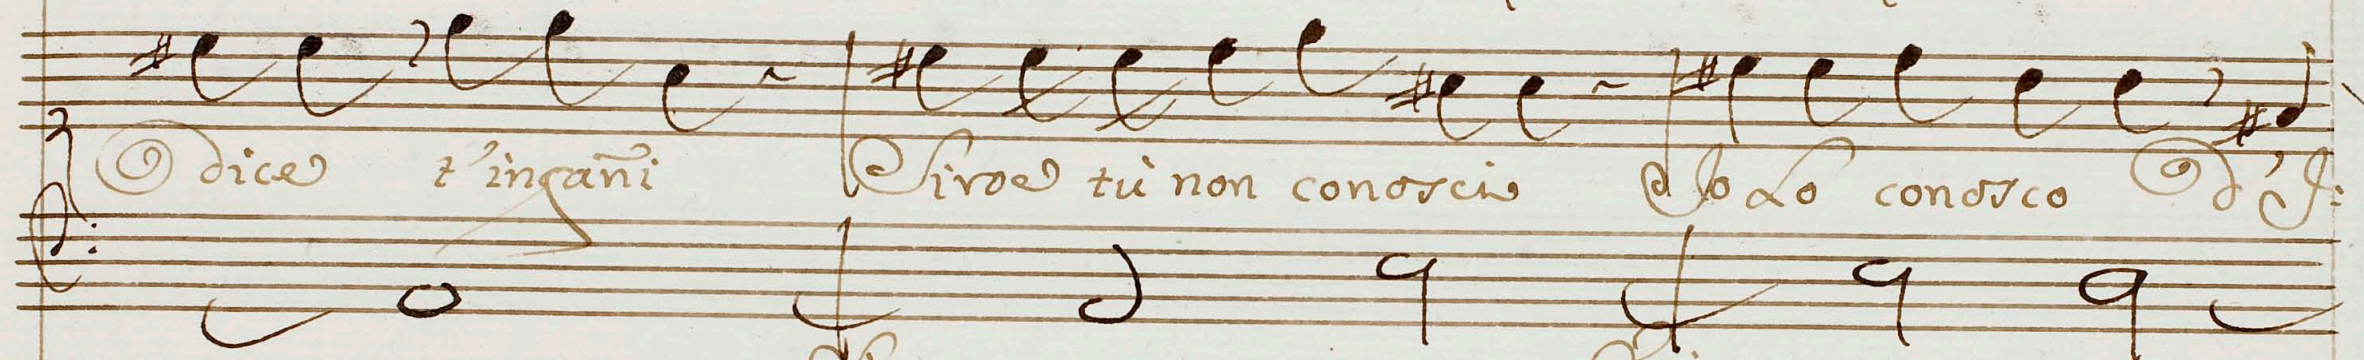 dice t'ingañi Siroe tù non conosci Io Lo conosco d'I: